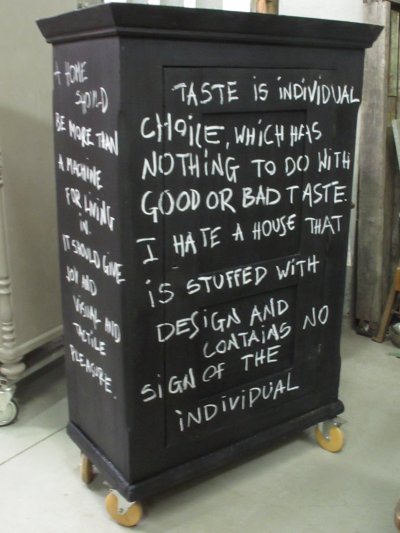 A HOME
SHOULD
BE MORE THAN
A MACHINE
FOR LIVING
IN.
IT SHOULD GIVE
JOY AND
VISUAL AND
TACTILE
PLEASURE.
TASTE IS INDIVIDUAL
CHOICE, WHICH HAS
NOTHING TO DO WITH
GOOD OR BAD TASTE.
I HATE A HOUSE THAT
IS STUFFED WITH
DESIGN AND
CONTAINS NO
SIGN OF THE
INDIVIDUAL